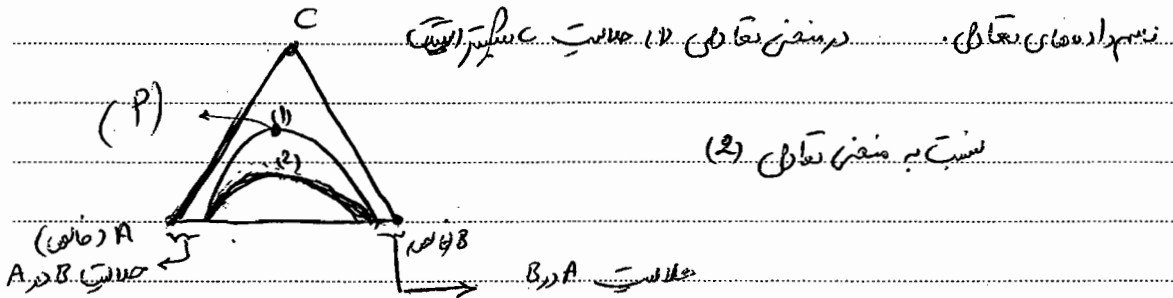 C
داده‌های تعادل. در منحنی تعادل (1) حلالیت C بیشتر است
(P)
(1)
(2)
نسبت به منحنی تعادل (2)
A (خالص)
B خالص
حلالیت B در A
حلالیت A در B